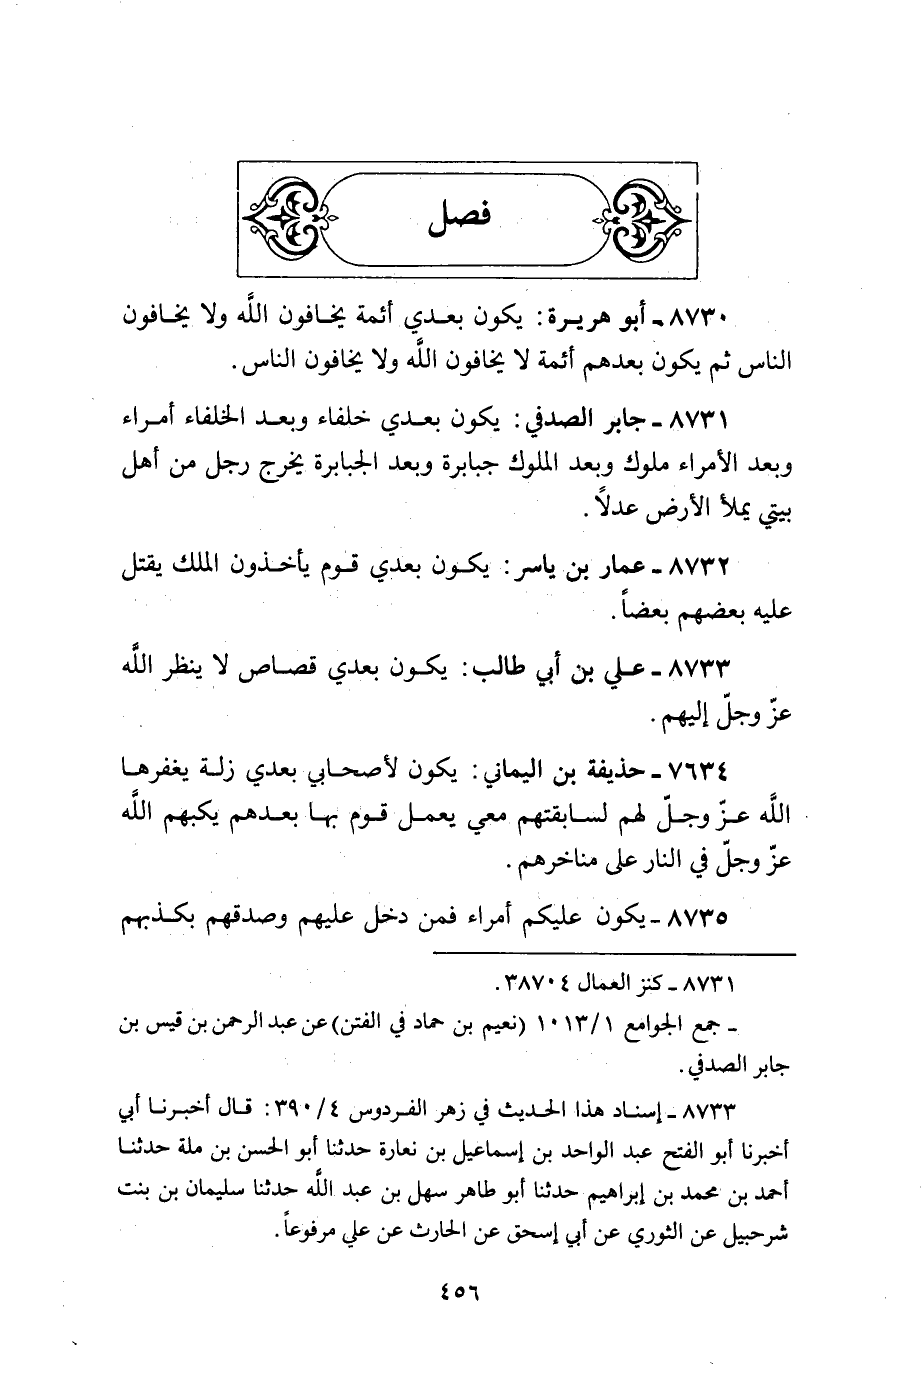 فصل
٨٧٣٠ ـ أبو هريرة: يكون بعدي أئمة يخافون اللَّه ولا يخافون
الناس ثم يكون بعدهم أئمة لا يخافون اللَّه ولا يخافون الناس.
٨٧٣١ ـ جابر الصدفي: يكون بعدي خلفاء وبعد الخلفاء أمراء
وبعد الأمراء ملوك وبعد الملوك جبابرة وبعد الجبابرة يخرج رجل من أهل
بيتي يملأ الأرض عدلاً.
٨٧٣٢ ـ عمار بن ياسر: يكون بعدي قوم يأخذون الملك يقتل
عليه بعضهم بعضاً.
٨٧٣٣ ـ علي بن أبي طالب: يكون بعدي قصاص لا ينظر اللَّه
عزّ وجلّ إليهم.
٧٦٣٤ ـ حذيفة بن اليماني: يكون لأصحابي بعدي زلة يغفرها
اللَّه عزّ وجلّ لهم لسابقتهم معي يعمل قوم بها بعدهم يكبهم اللَّه
عزّ وجلّ في النار على مناخرهم.
٨٧٣٥ ـ يكون عليكم أمراء فمن دخل عليهم وصدقهم بكذبهم
٨٧٣١ ـ كنز العمال ٣٨٧٠٤.
ـ جمع الجوامع ١٠١٣/١ (نعيم بن حماد في الفتن) عن عبد الرحمن بن قيس بن
جابر الصدفي.
٨٧٣٣ ـ إسناد هذا الحديث في زهر الفردوس ٣٩٠/٤: قال أخبرنا أبي
أخبرنا أبو الفتح عبد الواحد بن إسماعيل بن نعارة حدثنا أبو الحسن بن ملة حدثنا
أحمد بن محمد بن إبراهيم حدثنا أبو طاهر سهل بن عبد اللَّه حدثنا سليمان بن بنت
شرحبيل عن الثوري عن أبي إسحق عن الحارث عن علي مرفوعاً.
٤٥٦